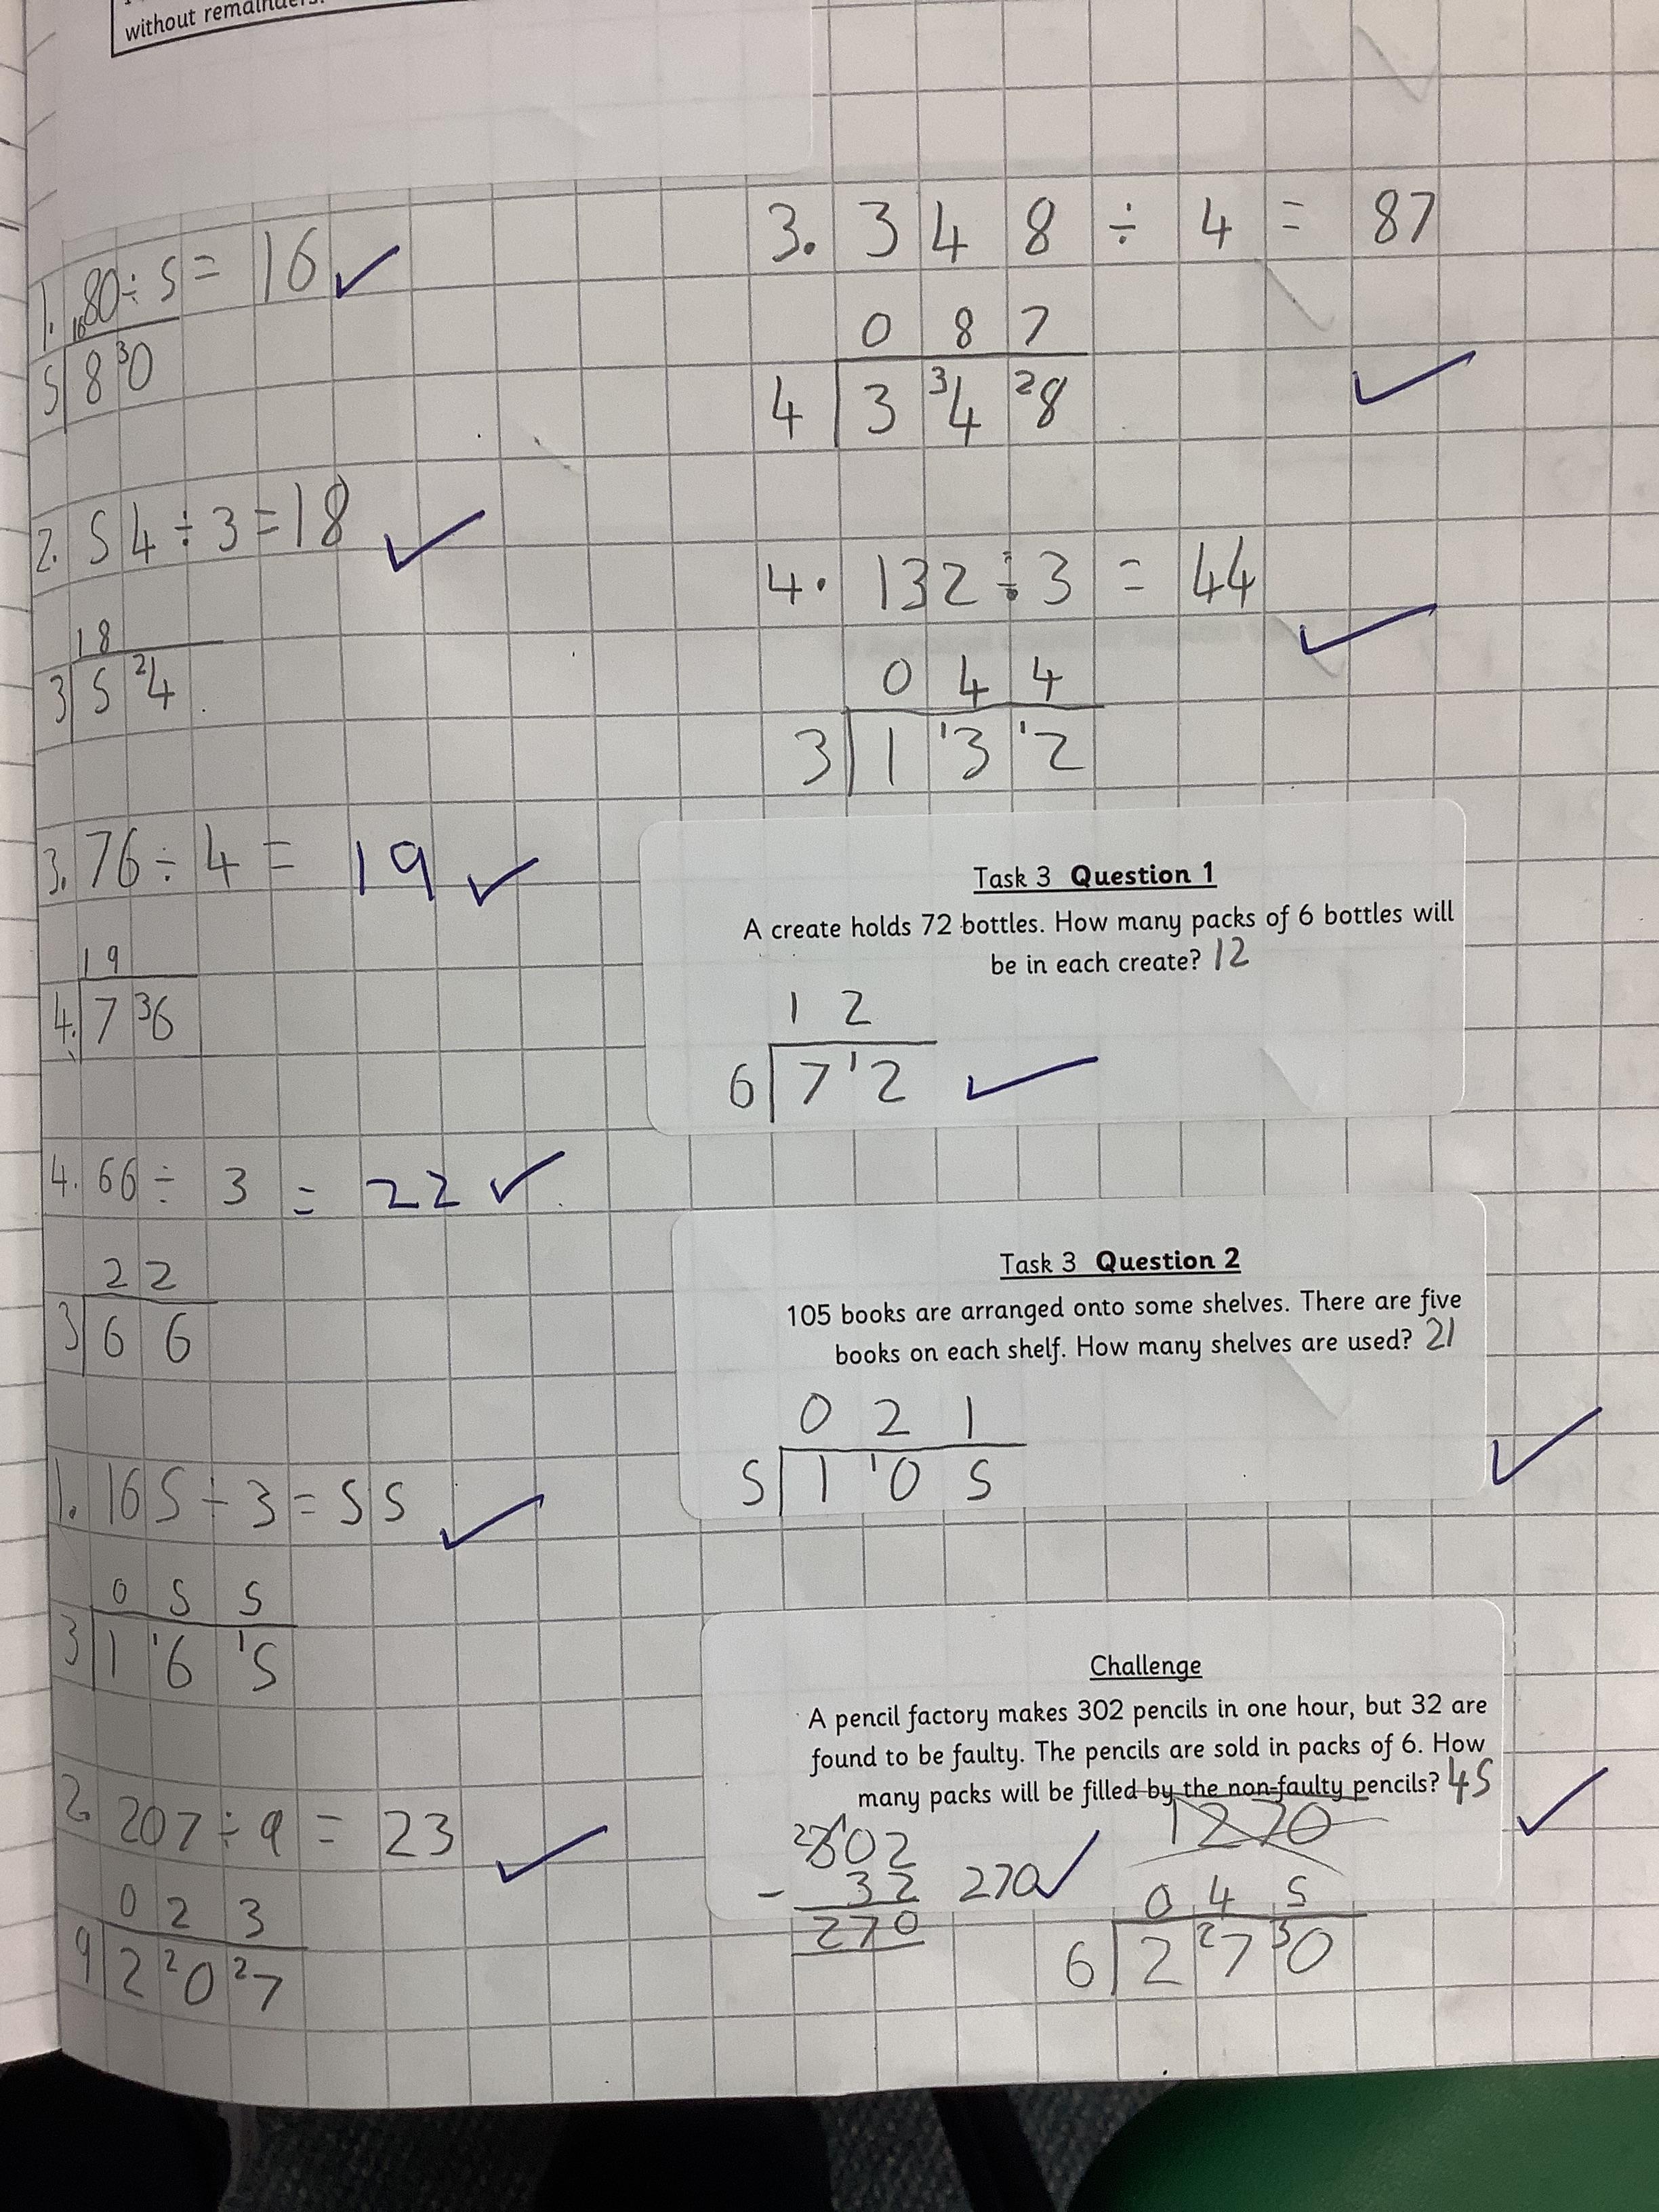 without remainders.
1. 80 ÷ 5 = 16
16
5 8 30
2. 54 ÷ 3 = 18
18
3 5 24
3. 76 ÷ 4 = 19
19
4 7 36
4. 66 ÷ 3 = 22
22
3 6 6
1. 165 ÷ 3 = 55
0 5 5
3 1 16 15
2. 207 ÷ 9 = 23
0 2 3
9 2 20 27
3. 348 ÷ 4 = 87
0 8 7
4 3 34 28
4. 132 ÷ 3 = 44
0 4 4
3 1 13 12
Task 3 Question 1
A create holds 72 bottles. How many packs of 6 bottles will
be in each create? 12
1 2
6 7 12
Task 3 Question 2
105 books are arranged onto some shelves. There are five
books on each shelf. How many shelves are used? 21
0 2 1
5 1 10 5
Challenge
A pencil factory makes 302 pencils in one hour, but 32 are
found to be faulty. The pencils are sold in packs of 6. How
many packs will be filled by the non-faulty pencils? 45
2 3 1 0 2
- 32 270
270
1270
0 4 5
6 2 27 30